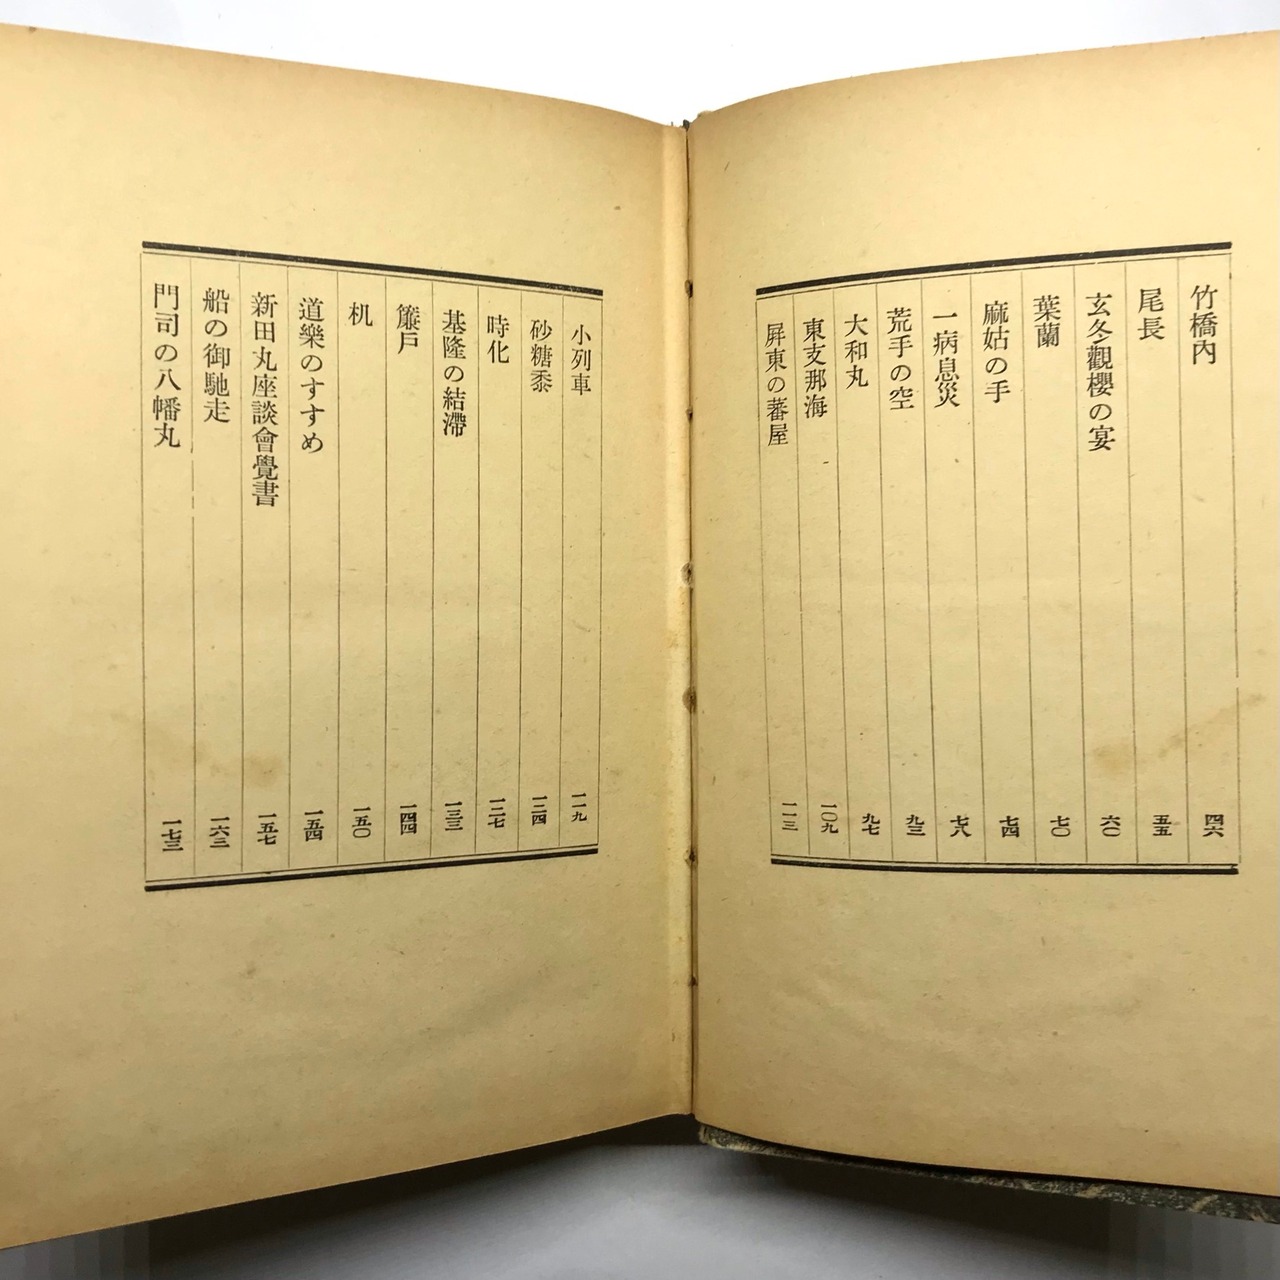 竹橋內 四六
尾長 五五
玄冬觀櫻の宴 六〇
葉蘭 七〇
麻姑の手 七四
一病息災 七八
荒手の空 九三
大和丸 九七
東支那海 一〇九
屏東の蕃屋 一一三
小列車 一一九
砂糖黍 一二四
時化 一二七
基隆の結滯 一三三
簾戶 一四四
机 一五〇
道樂のすすめ 一五四
新田丸座談會覺書 一五七
船の御馳走 一六三
門司の八幡丸 一七三